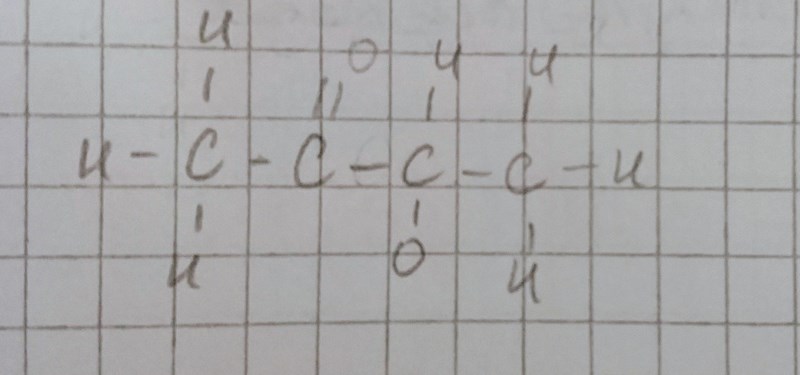 H
O H H
| || | |
H - C - C - C - C - H
| | |
H O H